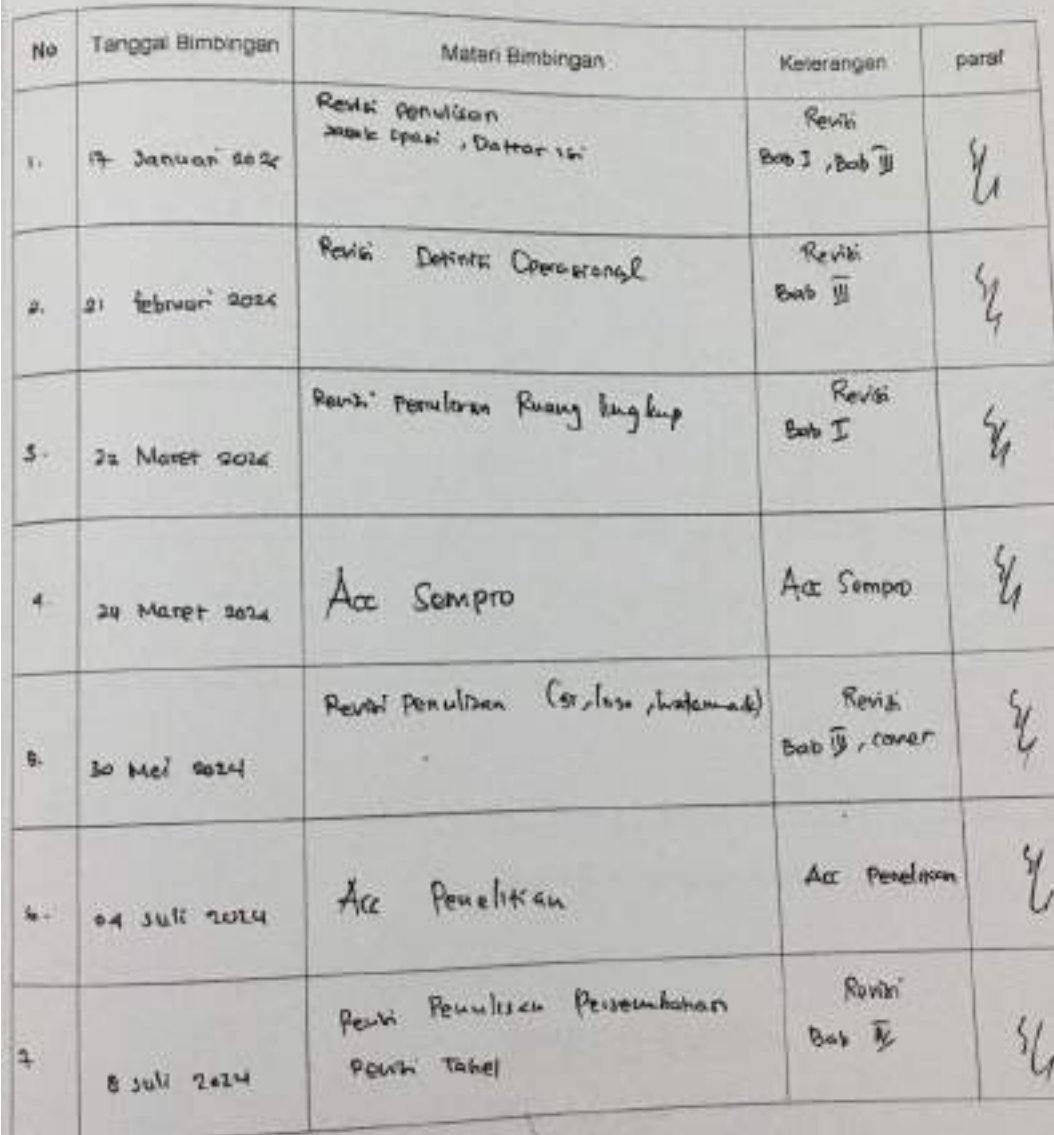 No Tanggal Bimbingan Materi Bimbingan Keterangan paraf
1. 17 Januari 2024 Revisi penulisan Revisi
Jarak spasi , Daftar isi Bab I , Bab III
2. 21 februari 2024 Revisi Definisi Operasional Revisi
Bab III
3. 22 Maret 2024 Revisi Penulisan Ruang lingkup Revisi
Bab I
4. 24 Maret 2024 Acc Sempro Acc Sempro
5. 30 Mei 2024 Revisi Penulisan ( , logo , watermark) Revisi
Bab III , cover
6. 04 Juli 2024 Acc Penelitian Acc Penelitian
7 8 Juli 2024 Revisi Penulisan Persembahan Revisi
Revisi Tabel Bab IV